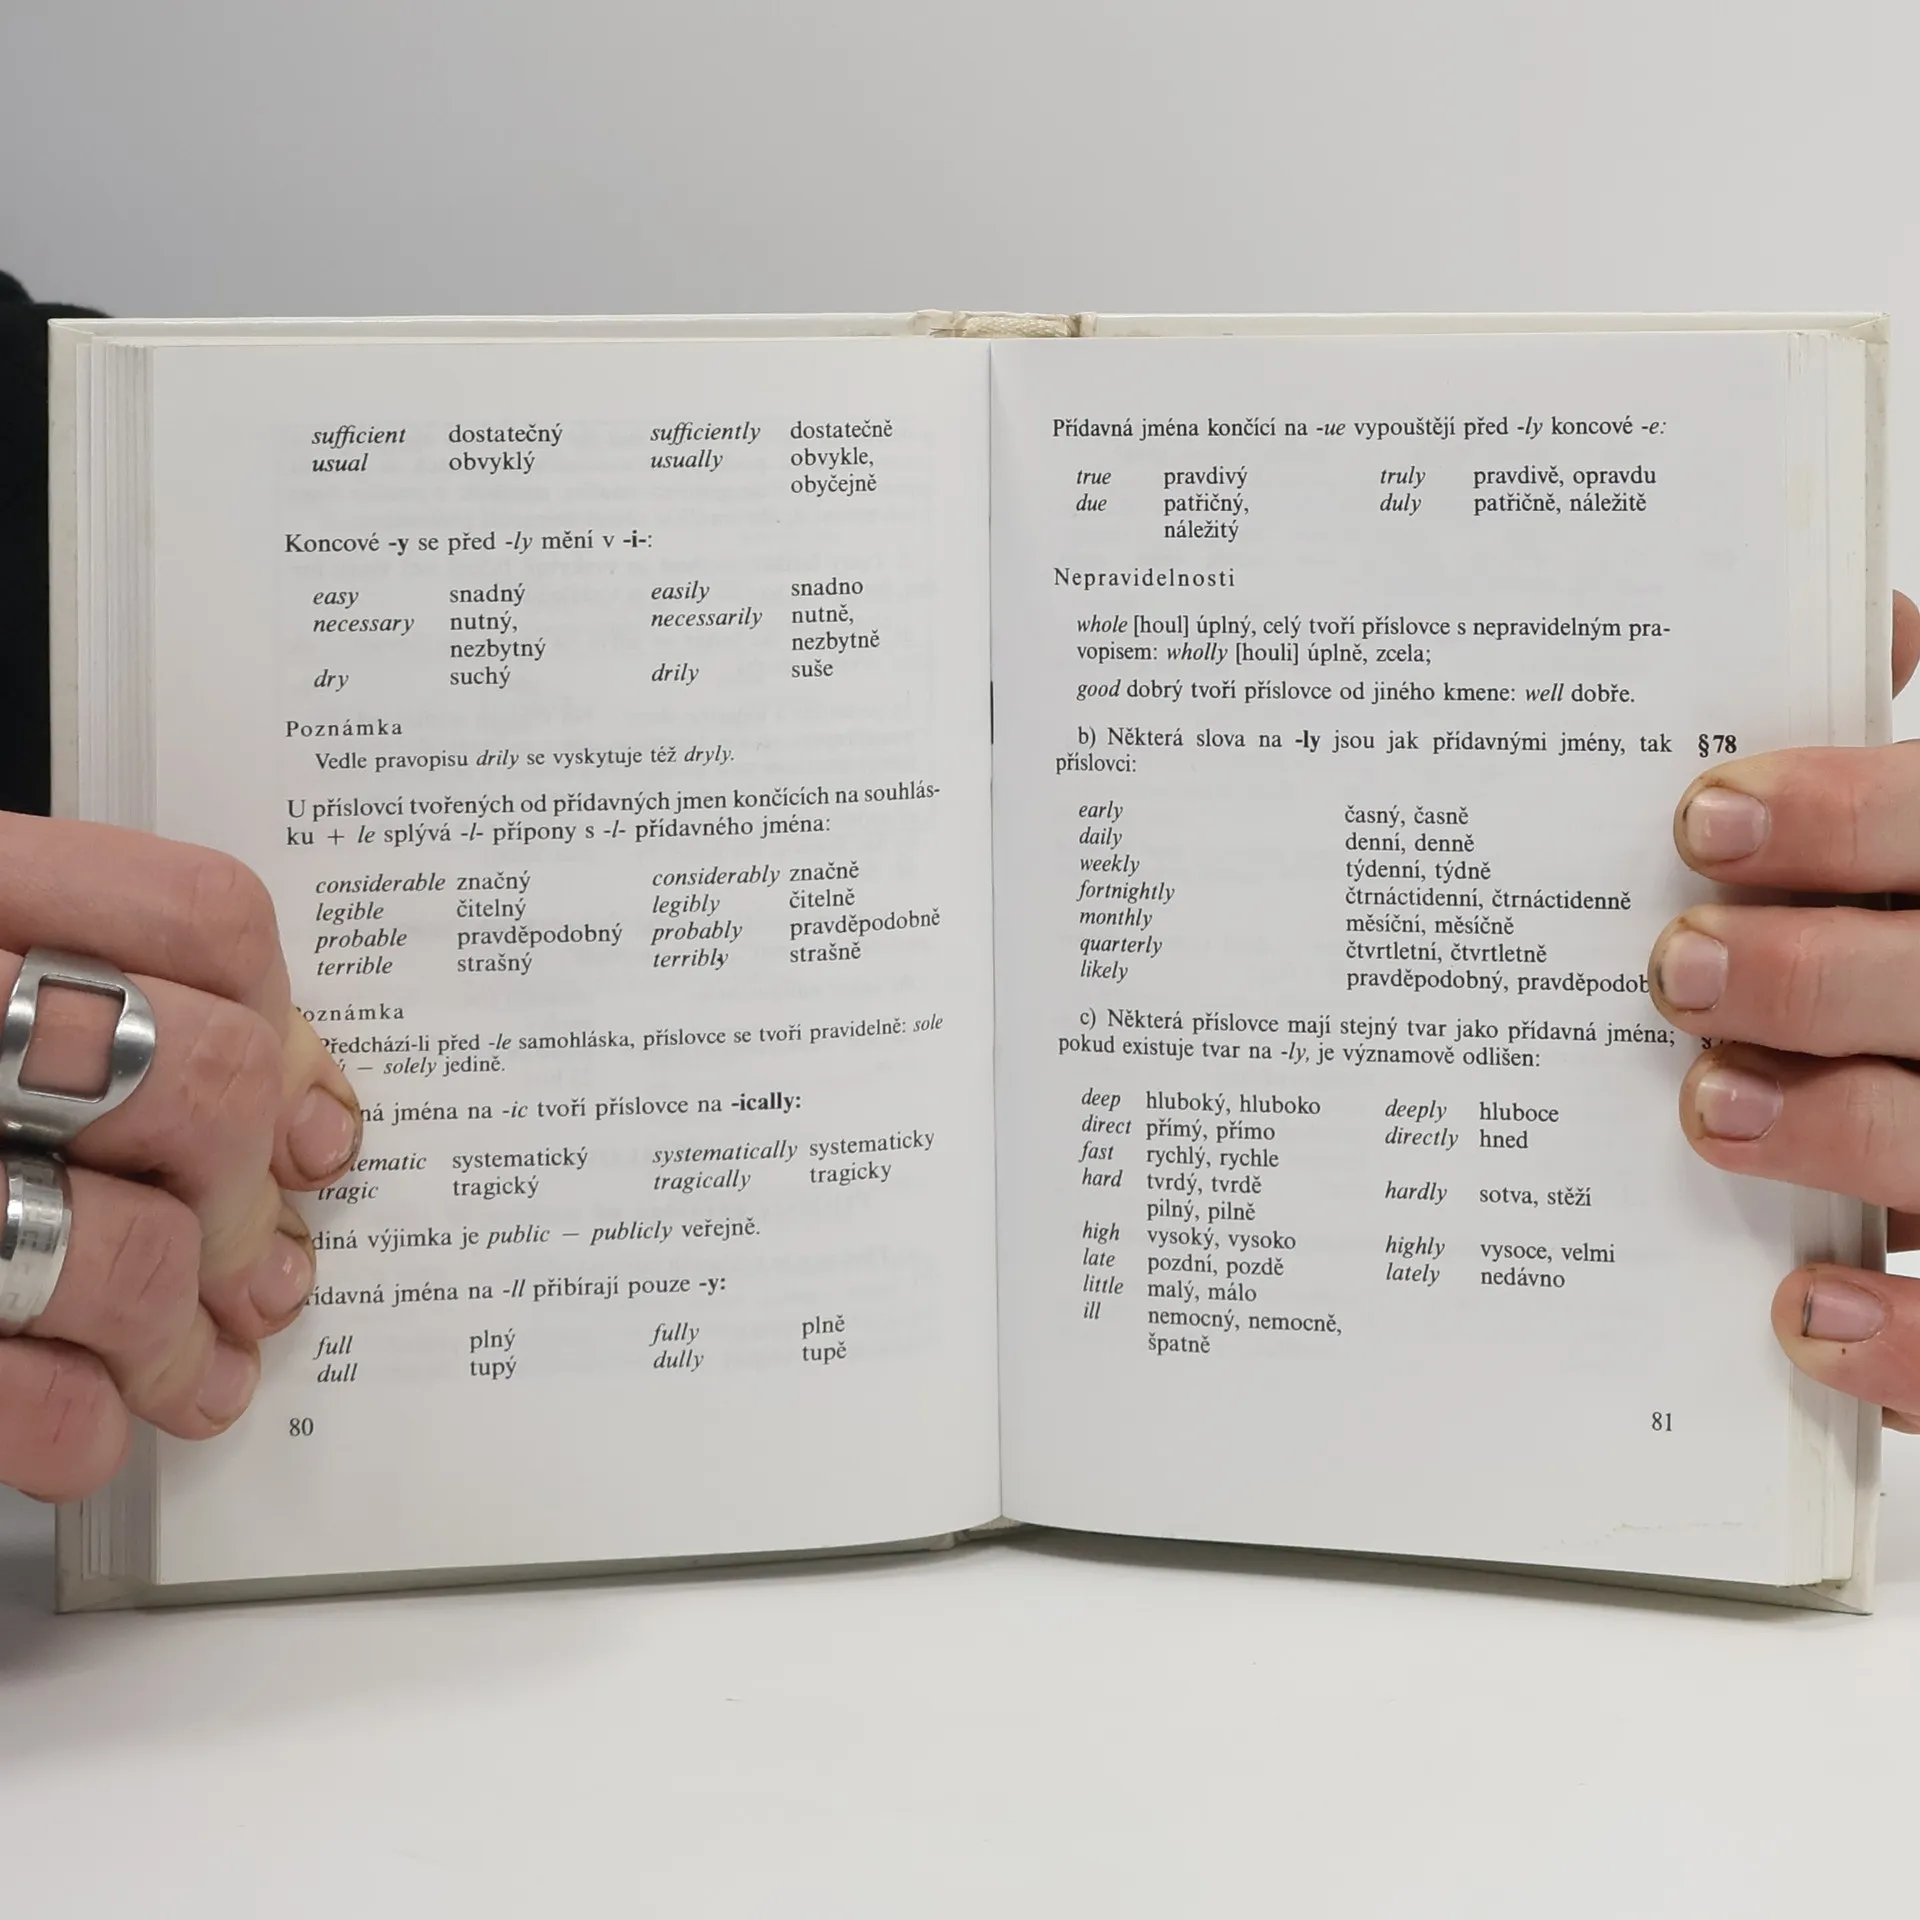 sufficient dostatečný sufficiently dostatečně
usual obvyklý usually obvykle,
obyčejně
Koncové -y se před -ly mění v -i-:
easy snadný easily snadno
necessary nutný, necessarily nutně,
nezbytný nezbytně
dry suchý drily suše
Poznámka
Vedle pravopisu drily se vyskytuje též dryly.
U příslovcí tvořených od přídavných jmen končících na souhlás-
ku + le splývá -l- přípony s -l- přídavného jména:
considerable značný considerably značně
legible čitelný legibly čitelně
probable pravděpodobný probably pravděpodobně
terrible strašný terribly strašně
oznámka
Předchází-li před -le samohláska, příslovce se tvoří pravidelně: sole
— solely jedině.
jména na -ic tvoří příslovce na -ically:
ematic systematický systematically systematicky
tragic tragický tragically tragicky
diná výjimka je public — publicly veřejně.
ídavná jména na -ll přibírají pouze -y:
full plný fully plně
dull tupý dully tupě
80
Přídavná jména končící na -ue vypouštějí před -ly koncové -e:
true pravdivý truly pravdivě, opravdu
due patřičný, duly patřičně, náležitě
náležitý
Nepravidelnosti
whole [houl] úplný, celý tvoří příslovce s nepravidelným pra-
vopisem: wholly [houli] úplně, zcela;
good dobrý tvoří příslovce od jiného kmene: well dobře.
b) Některá slova na -ly jsou jak přídavnými jmény, tak §78
příslovci:
early časný, časně
daily denní, denně
weekly týdenní, týdně
fortnightly čtrnáctidenní, čtrnáctidenně
monthly měsíční, měsíčně
quarterly čtvrtletní, čtvrtletně
likely pravděpodobný, pravděpodob
c) Některá příslovce mají stejný tvar jako přídavná jména;
pokud existuje tvar na -ly, je významově odlišen:
deep hluboký, hluboko deeply hluboce
direct přímý, přímo directly hned
fast rychlý, rychle
hard tvrdý, tvrdě hardly sotva, stěží
pilný, pilně
high vysoký, vysoko highly vysoce, velmi
late pozdní, pozdě lately nedávno
little malý, málo
ill nemocný, nemocně,
špatně
81